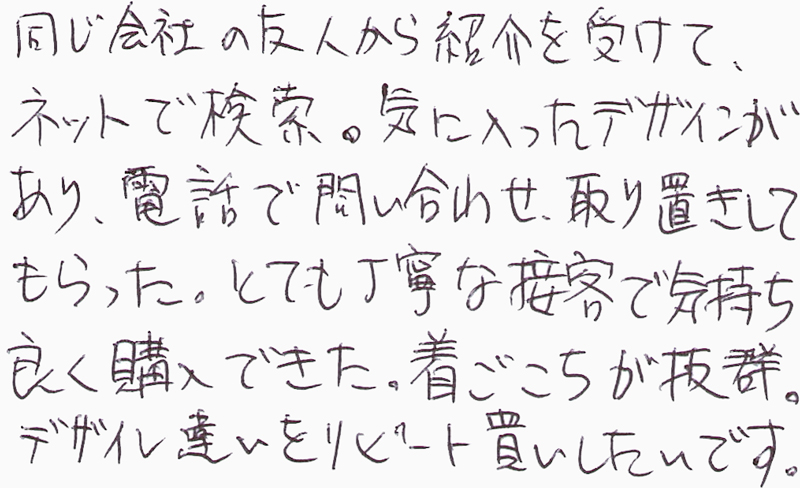 同じ会社の友人から紹介を受けて、
ネットで検索。気に入ったデザインが
あり、電話で問い合わせ、取り置きして
もらった。とても丁寧な接客で気持ち
良く購入できた。着ごこちが抜群。
デザイン違いをリピート買いしたいです。